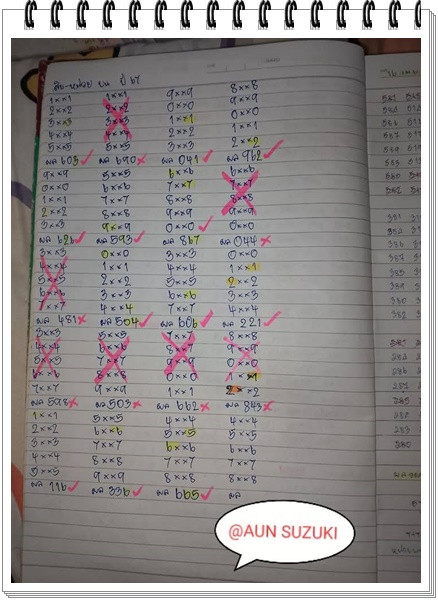 สิบ-หน่วย บน ปี 67
1××1 1××1 9××9 8××8
2××2 2××2 0××0 9××9
3××3 3××3 1××1 0××0
4××4 4××4 2××2 1××1
5××5 5××5 3××3 2××2
ผล 603 ✓ ผล 690 × ผล 041 ✓ ผล 962 ✓
9××9 5××5 6××6 6××6
0××0 6××6 7××7 7××7
1××1 7××7 8××8 8××8
2××2 8××8 9××9 9××9
3××3 9××9 0××0 0××0
ผล 626 ✓ ผล 593 ✓ ผล 867 ✓ ผล 044 ×
3××3 0××0 3××3 0××0
4××4 1××1 4××4 1××1
5××5 2××2 5××5 2××2
6××6 3××3 6××6 3××3
7××7 4××4 7××7 4××4
ผล 481 × ผล 504 ✓ ผล 606 ✓ ผล 221 ✓
3××3 5××5 7××7 8××8
4××4 6××6 8××7 9××9
5××5 7××7 9××9 0××0
6××6 8××8 0××0 1××1
7××7 9××9 1××1 2××2
ผล 598 × ผล 503 × ผล 662 × ผล 843 ×
1××1 5××5 4××4 4××4
2××2 6××6 5××5 5××5
3××3 7××7 6××6 6××6
4××4 8××8 7××7 7××7
5××5 9××9 8××8 8××8
ผล 116 ✓ ผล 336 ✓ ผล 665 ✓ ผล
@AUN SUZUKI